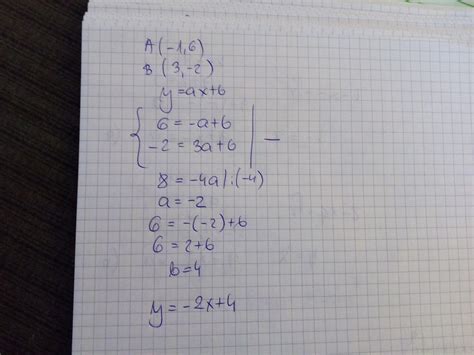 A(-1,6)
B(3,-2)
y=ax+b
6=-a+b
-2=3a+b | -
8=-4a/:(-4)
a=-2
6=-(-2)+b
6=2+b
b=4
y=-2x+4